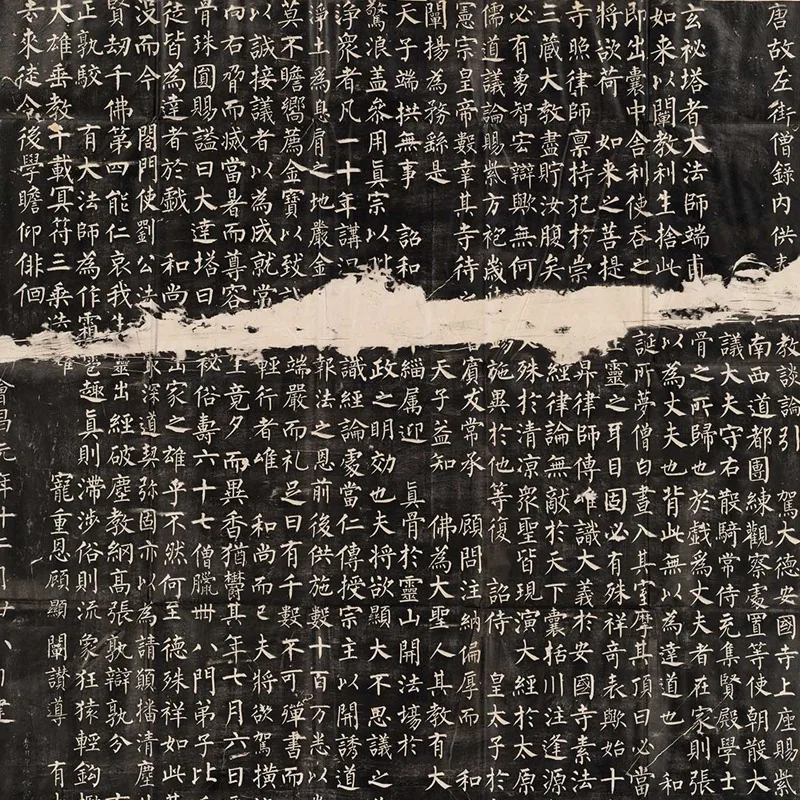 唐故左街僧錄內供 教談論引 駕大德安國寺上座賜紫
南西道都團練觀察處置等使朝散大
議大夫守右散騎常侍充集賢殿學士
玄祕塔者大法師端甫 骨之所歸也於戲為丈夫者在家則張
如來以闡教利生捨此 以為丈夫也背此無以為達道也 和
即出囊中舍利使吞之 誕所夢僧白晝入其室摩其頂曰必當
將欲荷 如來之菩提 靈之耳目固必有殊祥奇表歟始十
寺照律師稟持犯於崇 昇律師傳唯識大義於安國寺素法
三藏大教盡貯汝腹矣 經律論無敵於天下囊括川注逢源
必有勇智宏辯歟無何 人殊於清涼衆聖皆現演大經於太原
儒道議論賜紫方袍歲 施異於他等復 詔侍 皇太子於
憲宗皇帝數幸其寺待之 賓友常承 顧問注納偏厚而 和
闡揚為務繇是 天子益知 佛為大聖人其教有大
天子端拱無事 詔和 緇屬迎 真骨於靈山開法場於
驚浪盖參用真宗以 政之明効也夫將欲顯大不思議之
淨衆者凡一十年講 識經論處當仁傳授宗主以開誘道
淨土為息肩之地嚴金 報法之恩前後供施數十百万悉以
莫不瞻嚮薦金寶以致 端嚴而礼足日有千數不可殫書而
以誠接議者以為成就常 輕行者唯 和尚而已夫將欲駕橫
向右脅而滅當暑而尊容 生竟夕而異香猶鬱其年七月六日
骨珠圓賜謚曰大達塔曰 秘俗壽六十七僧臘卌八門弟子比
徒皆為達者於戲 和尚 出家之雄乎不然何至德殊祥如此
沒而今 閤門使劉公法 深道契弥固亦以為請願播清塵
賢劫千佛第四能仁哀我生 靈出經破塵教綱高張孰辯孰分 有
正孰駮 有大法師為作霜 趣真則滯涉俗則流象狂猿輕鉤
大雄垂教千載冥符三乘 寵重恩顧顯闡讚導 有
去來徒令後學瞻仰俳佪
會昌元年十二月廿八日建